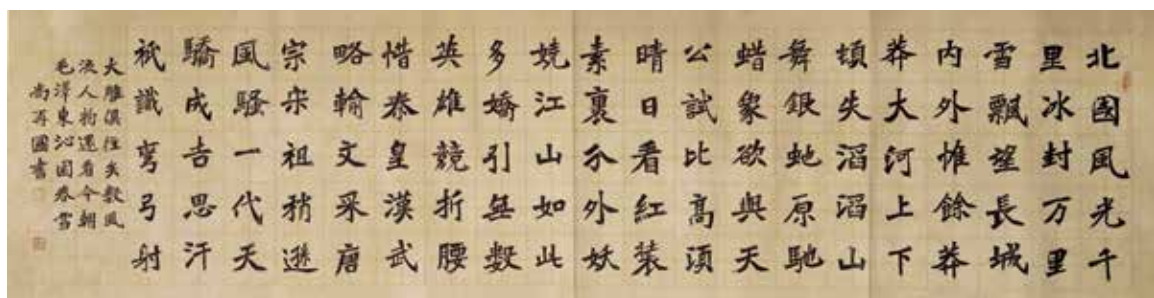 北國風光千
里冰封万里
雪飄望長城
内外惟餘莽
莽大河上下
頓失滔滔山
舞銀虵原馳
蜡象欲與天
公試比高湏
晴日看紅装
素裹分外妖
嬈江山如此
多嬌引無數
英雄競折腰
惜秦皇漢武
略輸文采唐
宗宋祖稍遜
風騷一代天
驕成吉思汗
祇識彎弓射
大雕俱往矣數風
流人物還看今朝
毛澤東沁園春雪
尚再國書